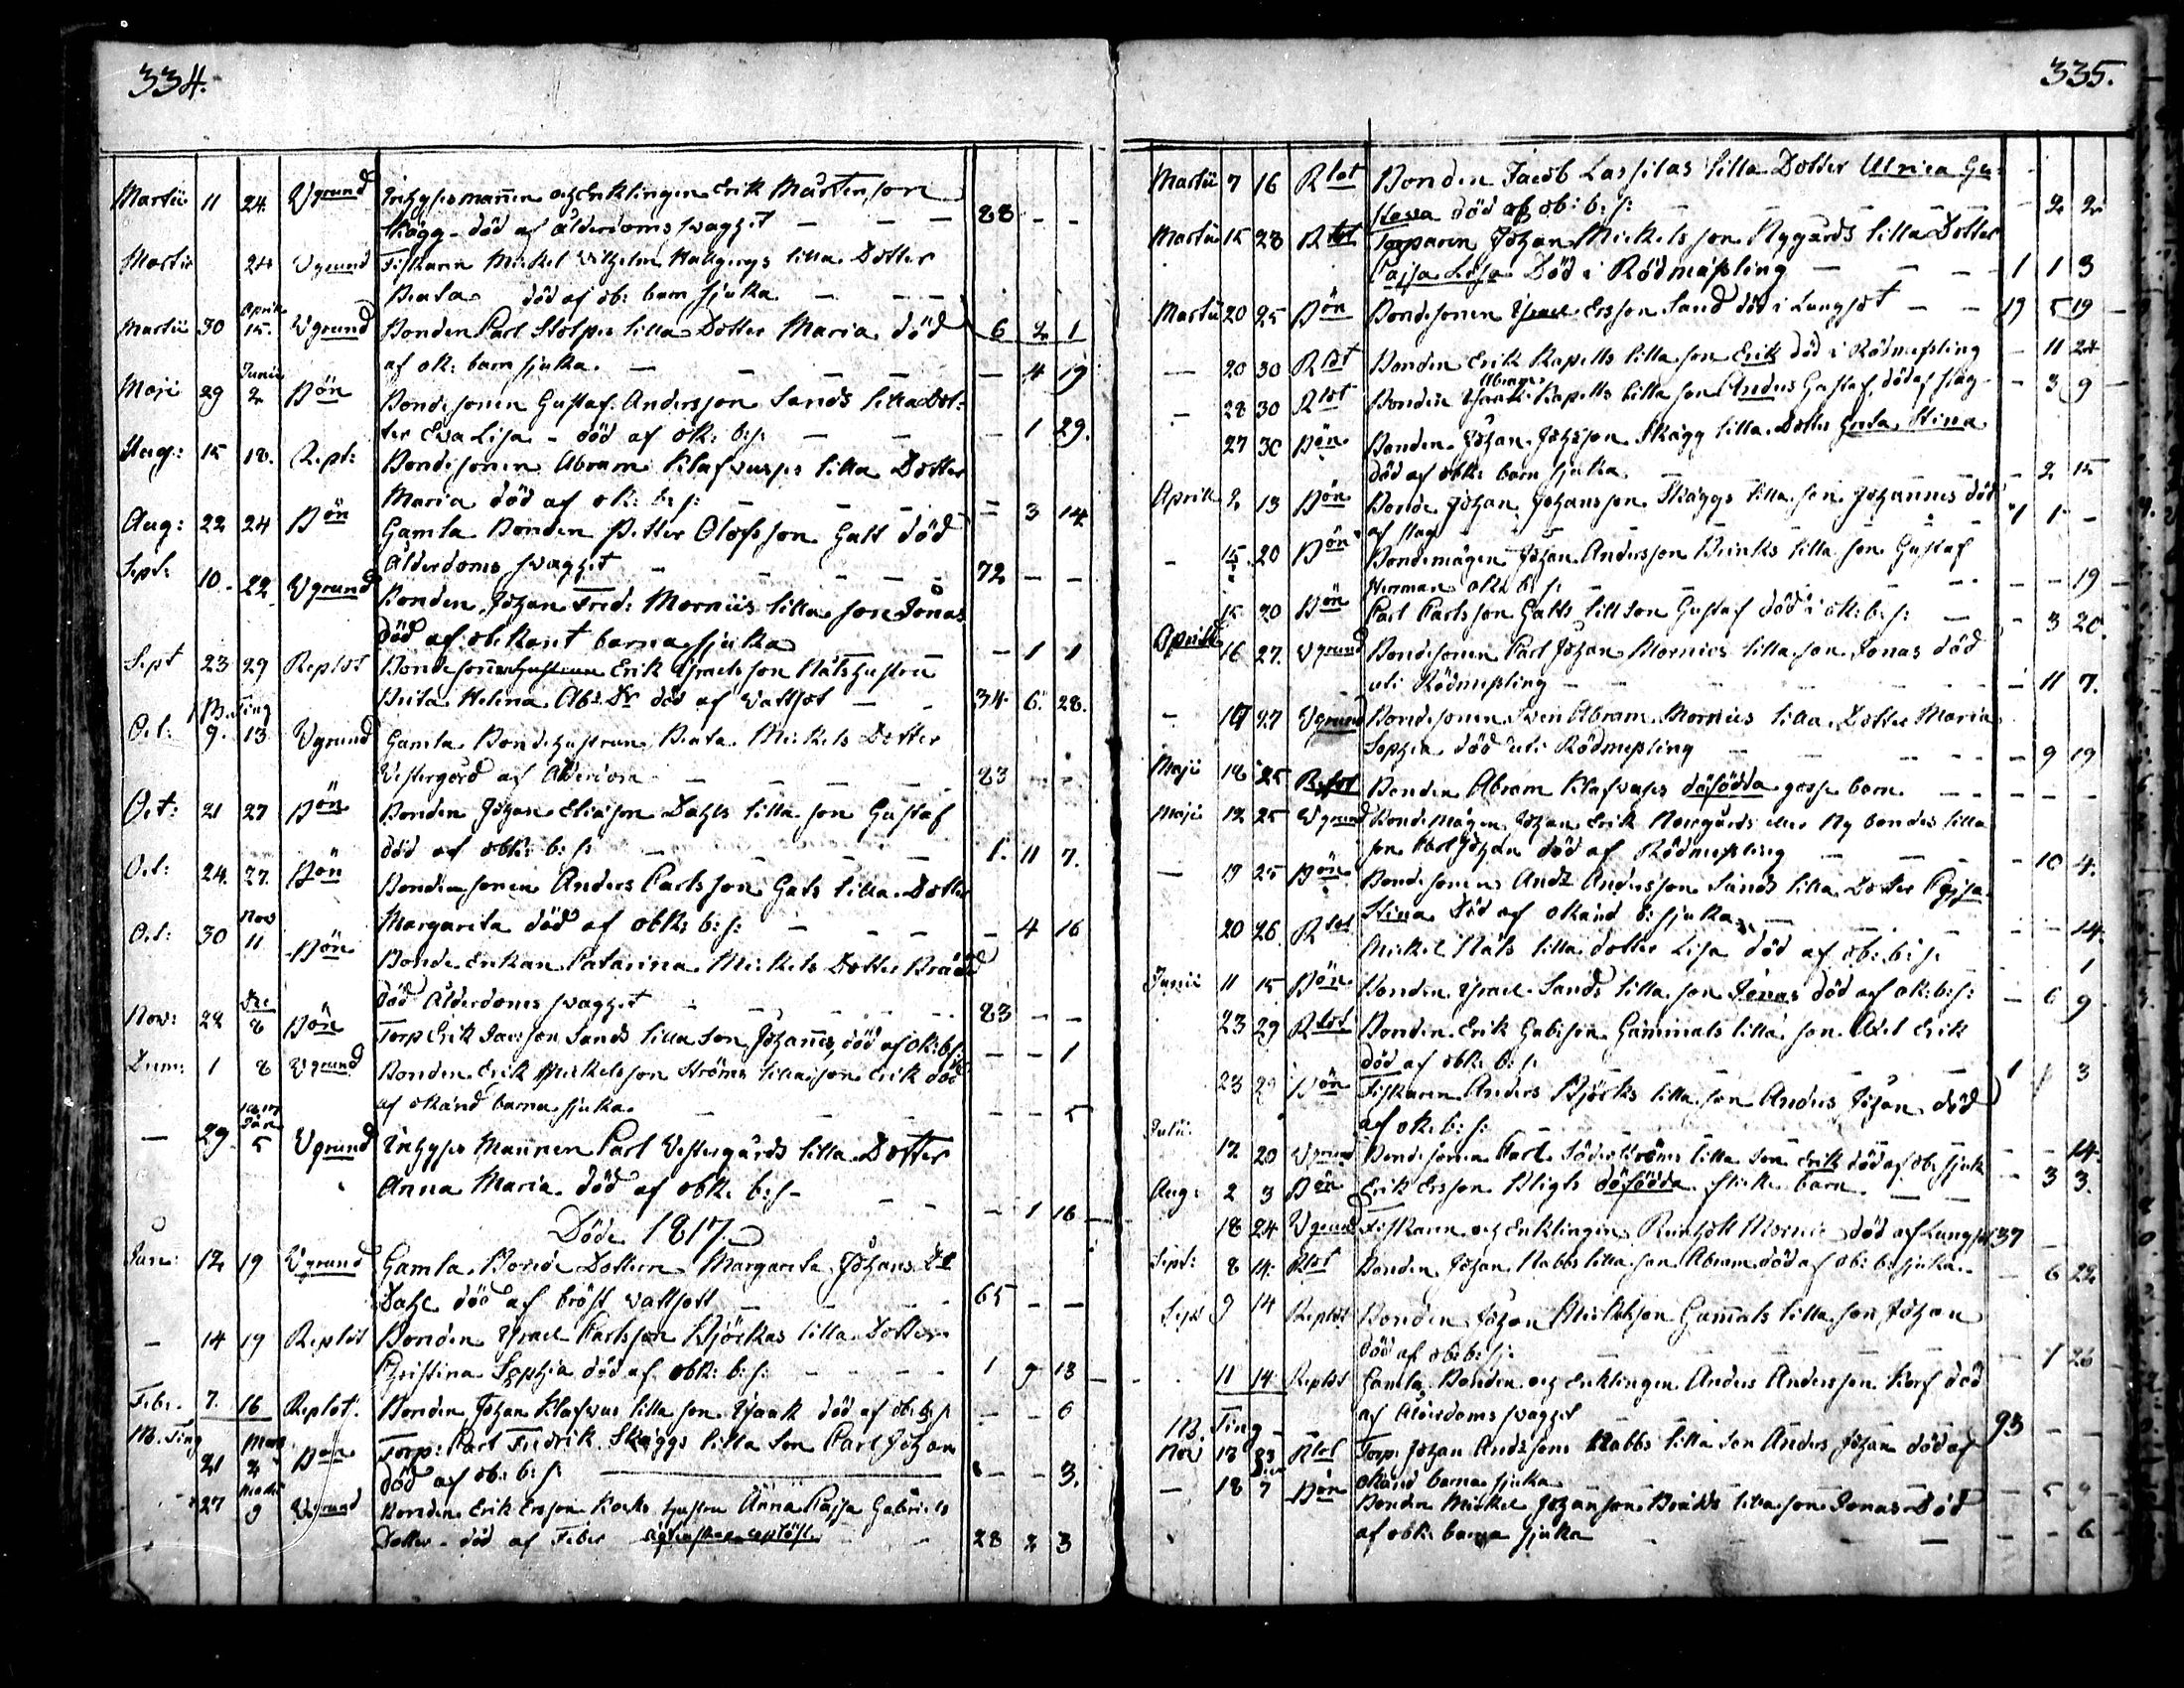 334.
Martii 11 24 Wgrund Inhysesmannen och Enklingen Erik Mårtensson
Skägg - död af ålderdoms svaghet — — — 88 - -
Martii 24 Wgrund Fiskaren Mickel Wilhelm lilla Dotter
Beata död af ob: barn sjuka — — —
Martii 30 Aprill 15. Wgrund Bonden Carl Stolpes lilla Dotter Maria död 6 2 1
af ok: barn sjuka. — — — — 4 19
Maji 29 Junii 2 Bön Bondesonen Gustaf Andersson Sands lilla Dot-
ter Eva Lisa - död af ok: b: s: — — - 1 29.
Aug: 15 18. Repl: Bondesonen Abram Klafvuses lilla Dotter
Maria död af ok: b: s: — — — - 3 14
Aug: 22 24 Bön Gamla Bonden Petter Olofsson Gall död
Ålderdoms svaghet — — — 72 - -
Sept: 10 - 22 Wgrund Bonden Johan Fred: Mornüs lilla son Jonas
död af obekant barnasjuka - 1 1
Sept 23 29 Replot Bonde Erik Israelsson Nåls hustru
Brita Helena Abr: Dr död af Wattsot — — 34 6 28.
M. Ting
Oct: 9. 13 Wgrund Gamla Bondehustrun Beata Mickels Dotter
Westergård af Ålderdom — — — 83 - -
Oct: 21 27 Bön Bonden Johan Eliasson Dahls lilla son Gustaf
död af obk: b: s: — — — 1. 11 7.
Oct: 24. 27. Bön Bondesonen Anders Carlsson Gals lilla Dotter
Margareta död af obk: b: s: — — — - 4 16
Oct: 30 Nov 11 Bön Bonde Enkan Catarina Mickels Dotter Brädd
död Ålderdoms svaghet — — — 83 - -
Nov: 28 Dec 8 Bön Torp Erik Jacsson Sands lilla Son Johannes, död af ok: b: s: - - 1
Decem: 1 8 Wgrund Bonden Erik Mickelsson Ströms lilla son Erik död
af okänd barnasjuka. — — — - - 5
— 29 1817 Jan 5 Wgrund Inhyses Mannen Carl Westergårds lilla Dotter
Anna Maria död af obk: b: s - — - 1 16
Döde 1817.
Jan: 12 19 Wgrund Gamla Bonde Dottern Margareta Johans Dr
Dahl död af bröst wattsott — — 65 - -
— 14 19 Replot Bonden Israel Carlsson Björkas lilla Dotter
Christina Sophia död af obk: b: s: — — — 1 9 13
Febr. 7. 16 Replot. Bonden Johan Klafvus lilla son Isaak död af ob: b: s - - 6
M. Ting
21 Mars 2 Bön Torp: Carl Fredrik Skäggs lilla Son Carl Johan
död af ob: b: s: — - - 3.
27 Martii 9 Wgrund Bonden Erik Ersson Korks hustru Anna Cajsa Gabriels
Dotter - död af Feber — 28 2 3
335.
Martii 7 16 Rlot Bonden Jacob Lassilas lilla Dotter Ulrica Gu-
stava död af ob: b: s: — — — - 2 2
Martii 15 23 Rlot Torparen Johan Mickelsson Nygårds lilla Dotter
Cajsa Lisa Död i Rödmässling — — — 1 1 3
Martii 20 25 Bön Bondesonen Israel Ersson Sand död i Lungsot — — 19 5 19
— 20 30 Rlot Bonden Erik Kapells lilla son Erik död i Rödmessling - 11 24
- 28 30 Rlot Bonden Abram Kapells lilla son Anders Gustaf död af slag - 3 9
27 30 Bön Bonden Johan Johsson Skägg lilla Dotter Greta Stina
död af obk: barn sjuka — — - 2 15
Aprill 2 13 Bön Bonde Johan Johansson Skäggs lilla son Johannes död
af slag — — — 1 1 -
- 15 20 Bön Bondemågen Johan Andersson Brinks lilla son Gustaf
Herrman okt b: s: — — — - - 19
15 20 Bön Carl Carlsson Galls lill Son Gustaf död i ok: b: s: — - 3 20.
Aprill 16 27. Wgrund Bondesonen Carl Johan Mornüs lilla son Jonas död
uti Rödmessling — — — - 11 7.
- 17 27 Wgrund Bondesonen Sven Abram Mornüs lilla Dotter Maria
Sophia död uti Rödmessling — — — - 9 19
Maji 18 25 Replot Bonden Abram Klafvuses dödfödda gosse barn. — — - - -
Maji 12 25 Wgrund Bondemågen Johan Erik Norrgårds eller Nybondes lilla
son Carl Johan död af Rödmessling — — - 10 4.
— 19 25 Bön Bondesonens Ands Andersson Sands lilla Dotter Cajsa
Stina Död af okänd b: sjuka — — - - 14.
20 26 Rlot Mickel Nåls lilla dotter Lisa död af ob: b: s: 1
Junii 11 15 Bön Bonden Israel Sands lilla son Jonas död af ok: b: s: - 6 9
23 29 Rlot Bonden Erik Gabrsson Gammals lilla son Axel Erik
död af obk: b: s: — — 1 1 3
23 29 Bön Fiskaren Anders Björks lilla son Anders Johan död
af ok: b: s: — — — - - 14.
Julii 12 20 Wgrund Bondesonen Carl Söderströms lilla Son Erik död af ob: sjuk - 3 3.
Aug: 2 3 Bön Erik Ersson Bligts dödfödda flicke barn. —
18 24 Wgrund Fiskaren och Enklingen Reinholt Mornü död af Lungsot 37 -
Sept: 8 14 Rlot Bonden Johan Nabbs lilla son Abram död af ob: b: sjuka. - 6 22
Sept 9 14 Replot Bonden Johan Mickelsson Gammals lilla son Johan
död af ob: b: s: — — - 1 26
11 14 Replot Gamla Bonden och Enklingen Anders Andersson Korf död
af Ålderdoms svaghet — — 93 - -
M. Ting
Nov 13 23 Rlot Torp: Johan Andssons Nabbs lilla son Anders Johan död af
okänd barnasjuka — — — - 5 9
— 18 Dec 7 Bön Bonden Mickel Johansson Brädds lilla son Jonas Död
af obk: barna sjuka — — — - - 6